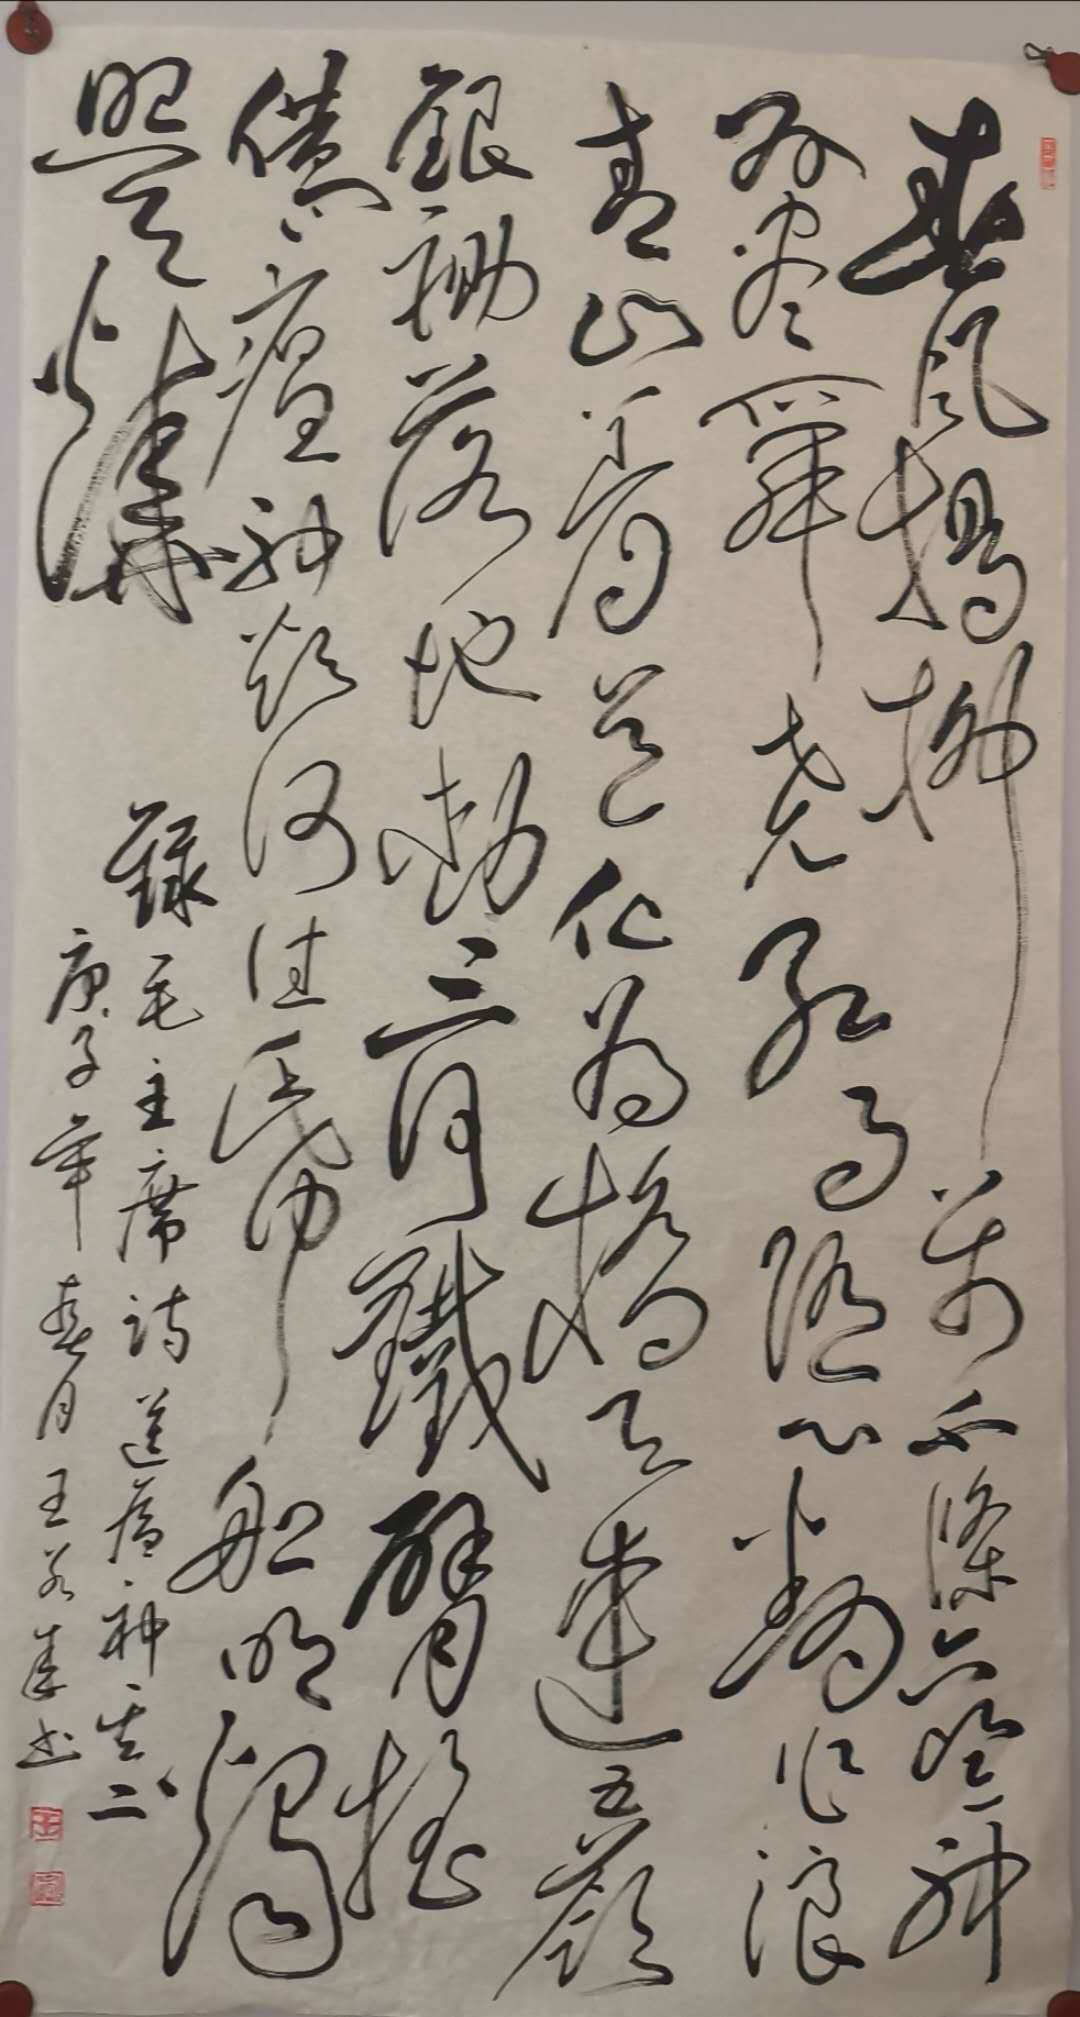 春风楊柳万千條六億神
州尽舜尧红雨随心翻作浪
青山着意化为橋天連五嶺
銀鋤落地动三河鐵臂摇
借问瘟神欲何往紙船明燭
照天燒
錄毛主席诗送瘟神其二
庚子年春月王若书